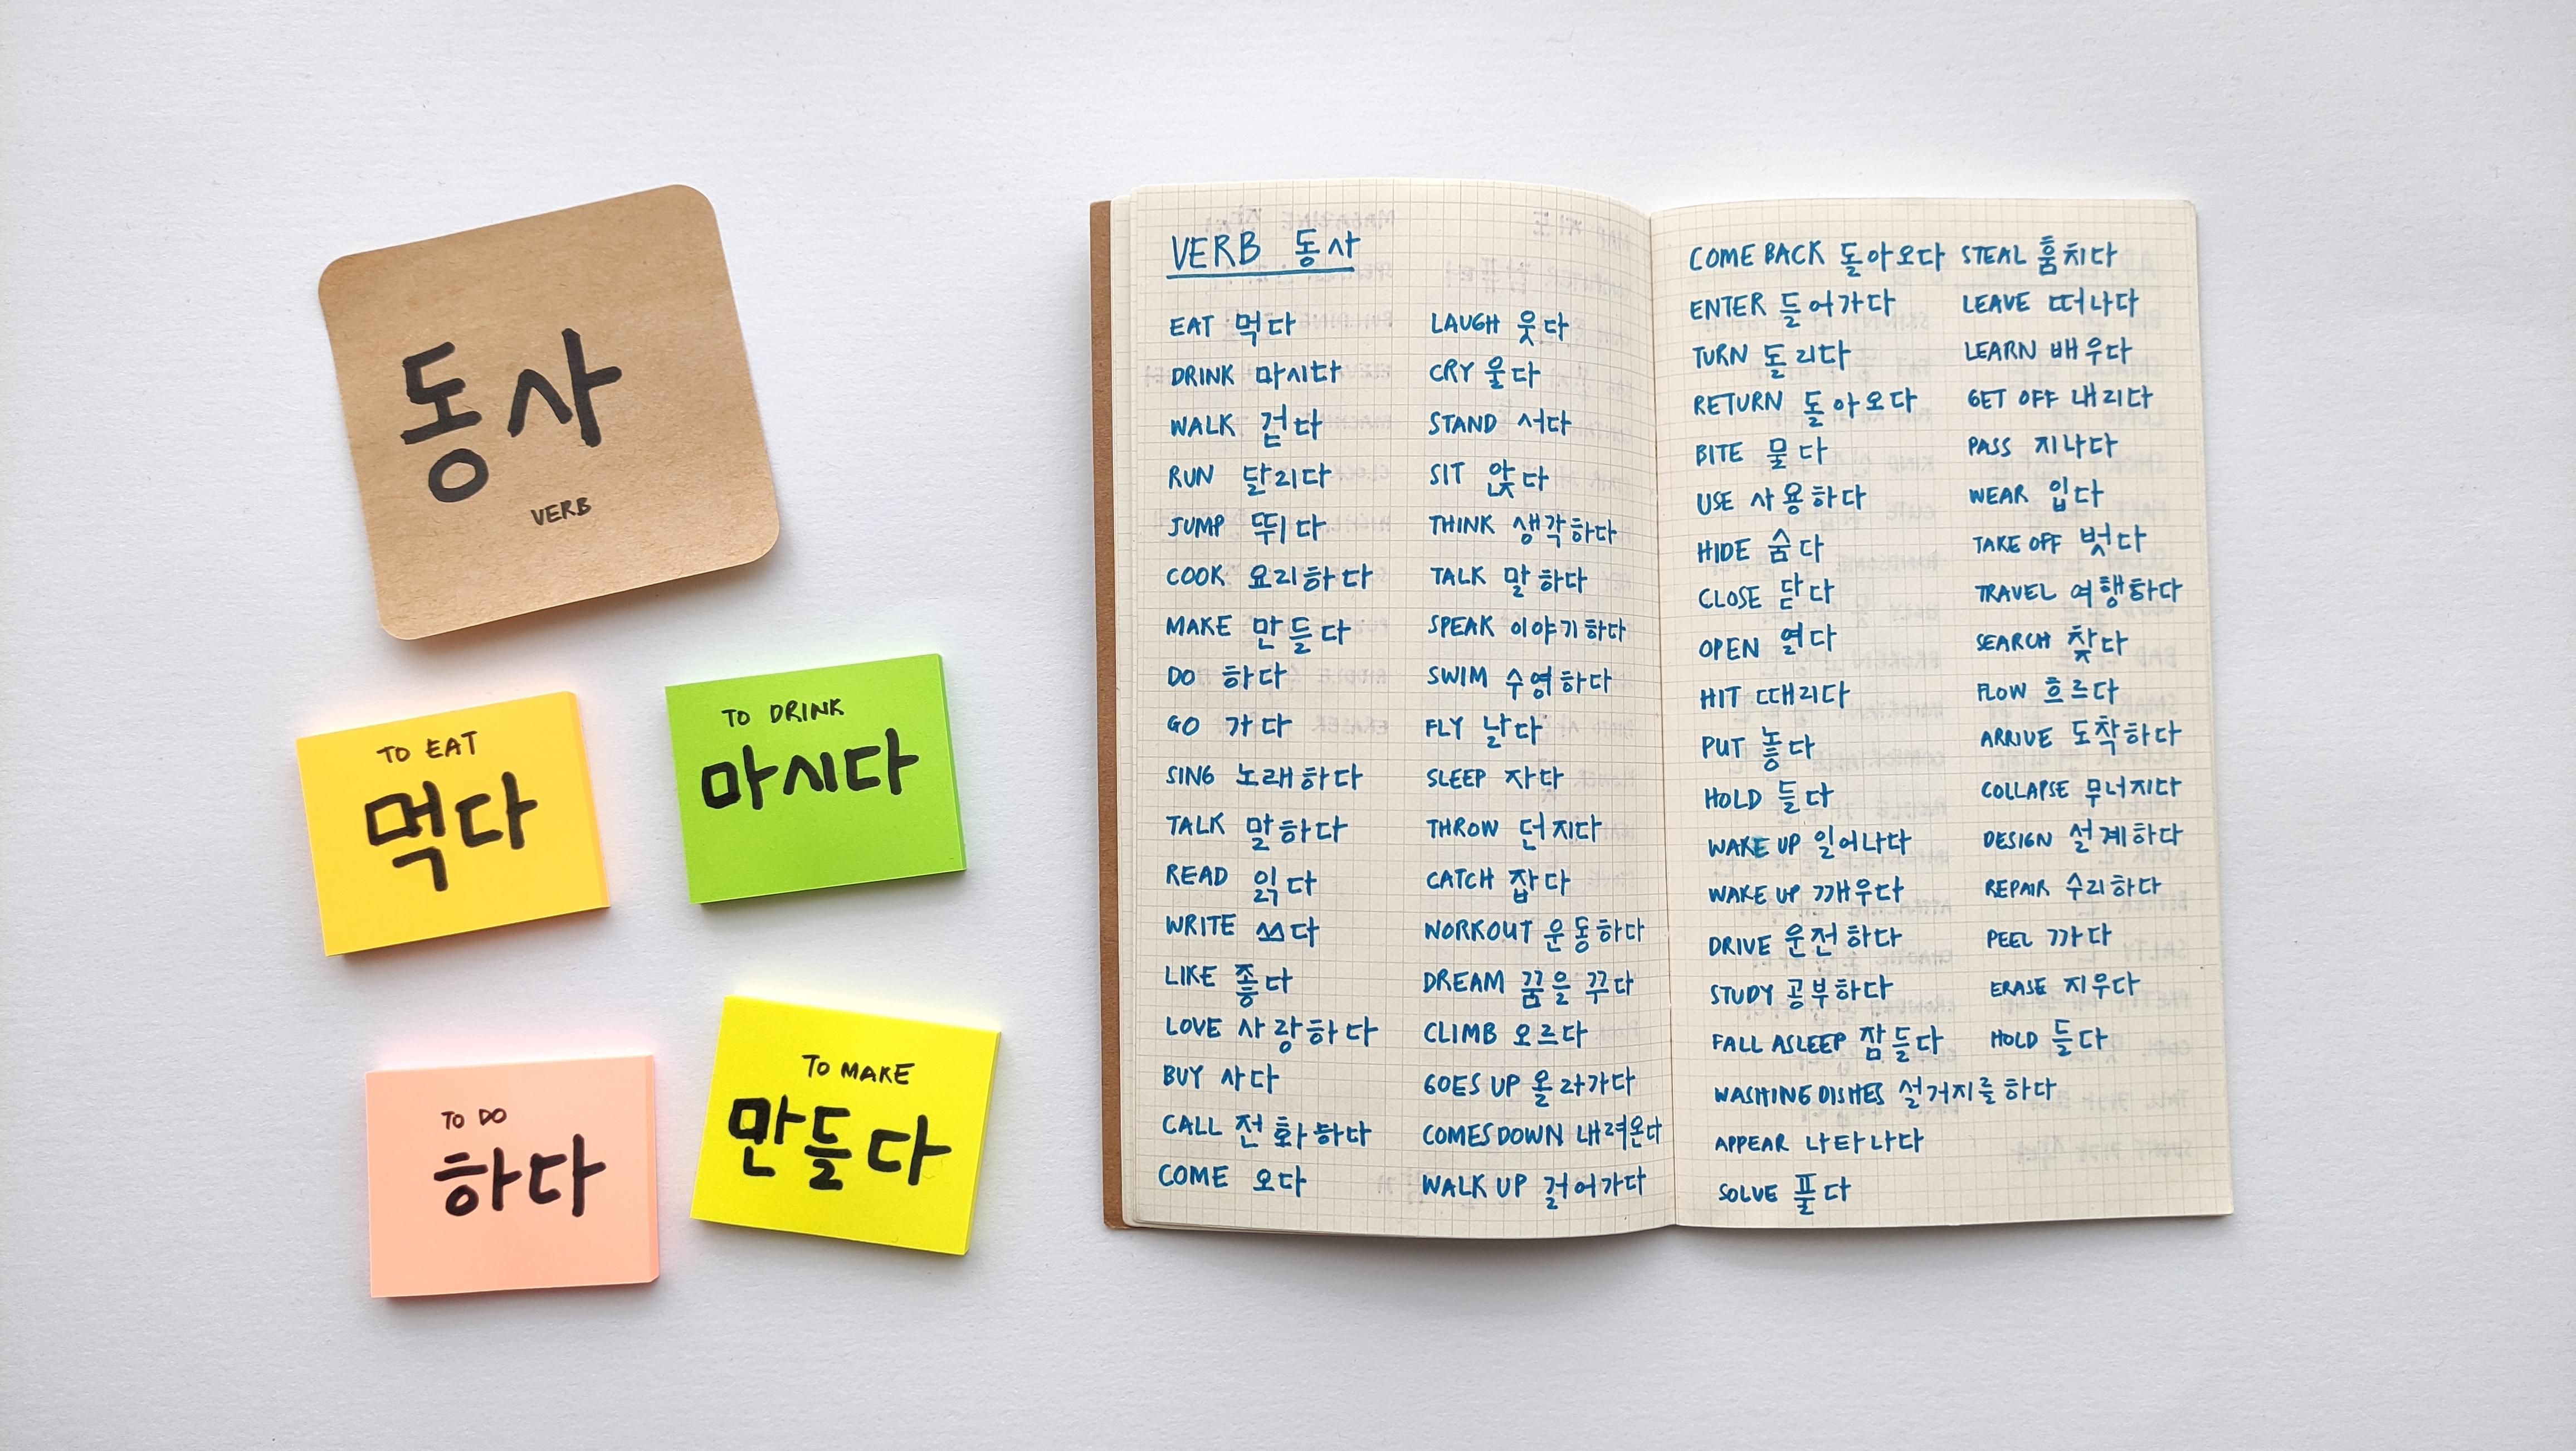 동사
VERB
TO EAT
먹다
TO DRINK
마시다
TO DO
하다
TO MAKE
만들다
VERB 동사
EAT 먹다
DRINK 마시다
WALK 겁다
RUN 달리다
JUMP 뛰다
COOK 요리하다
MAKE 만들다
DO 하다
GO 가다
SING 노래하다
TALK 말하다
READ 읽다
WRITE 쓰다
LIKE 좋다
LOVE 사랑하다
BUY 사다
CALL 전화하다
COME 오다
LAUGH 웃다
CRY 울다
STAND 서다
SIT 앉다
THINK 생각하다
TALK 말하다
SPEAK 이야기하다
SWIM 수영하다
FLY 날다
SLEEP 자다
THROW 던지다
CATCH 잡다
WORKOUT 운동하다
DREAM 꿈을 꾸다
CLIMB 오르다
GOES UP 올라가다
COMES DOWN 내려온다
WALK UP 걸어가다
COME BACK 돌아오다
ENTER 들어가다
TURN 돌리다
RETURN 돌아오다
BITE 물다
USE 사용하다
HIDE 숨다
CLOSE 닫다
OPEN 열다
HIT 때리다
PUT 놓다
HOLD 들다
WAKE UP 일어나다
WAKE UP 깨우다
DRIVE 운전하다
STUDY 공부하다
FALL ASLEEP 잠들다
WASHING DISHES 설거지를 하다
APPEAR 나타나다
SOLVE 풀다
STEAL 훔치다
LEAVE 떠나다
LEARN 배우다
GET OFF 내리다
PASS 지나다
WEAR 입다
TAKE OFF 벗다
TRAVEL 여행하다
SEARCH 찾다
FLOW 흐르다
ARRIVE 도착하다
COLLAPSE 무너지다
DESIGN 설계하다
REPAIR 수리하다
PEEL 까다
ERASE 지우다
HOLD 들다